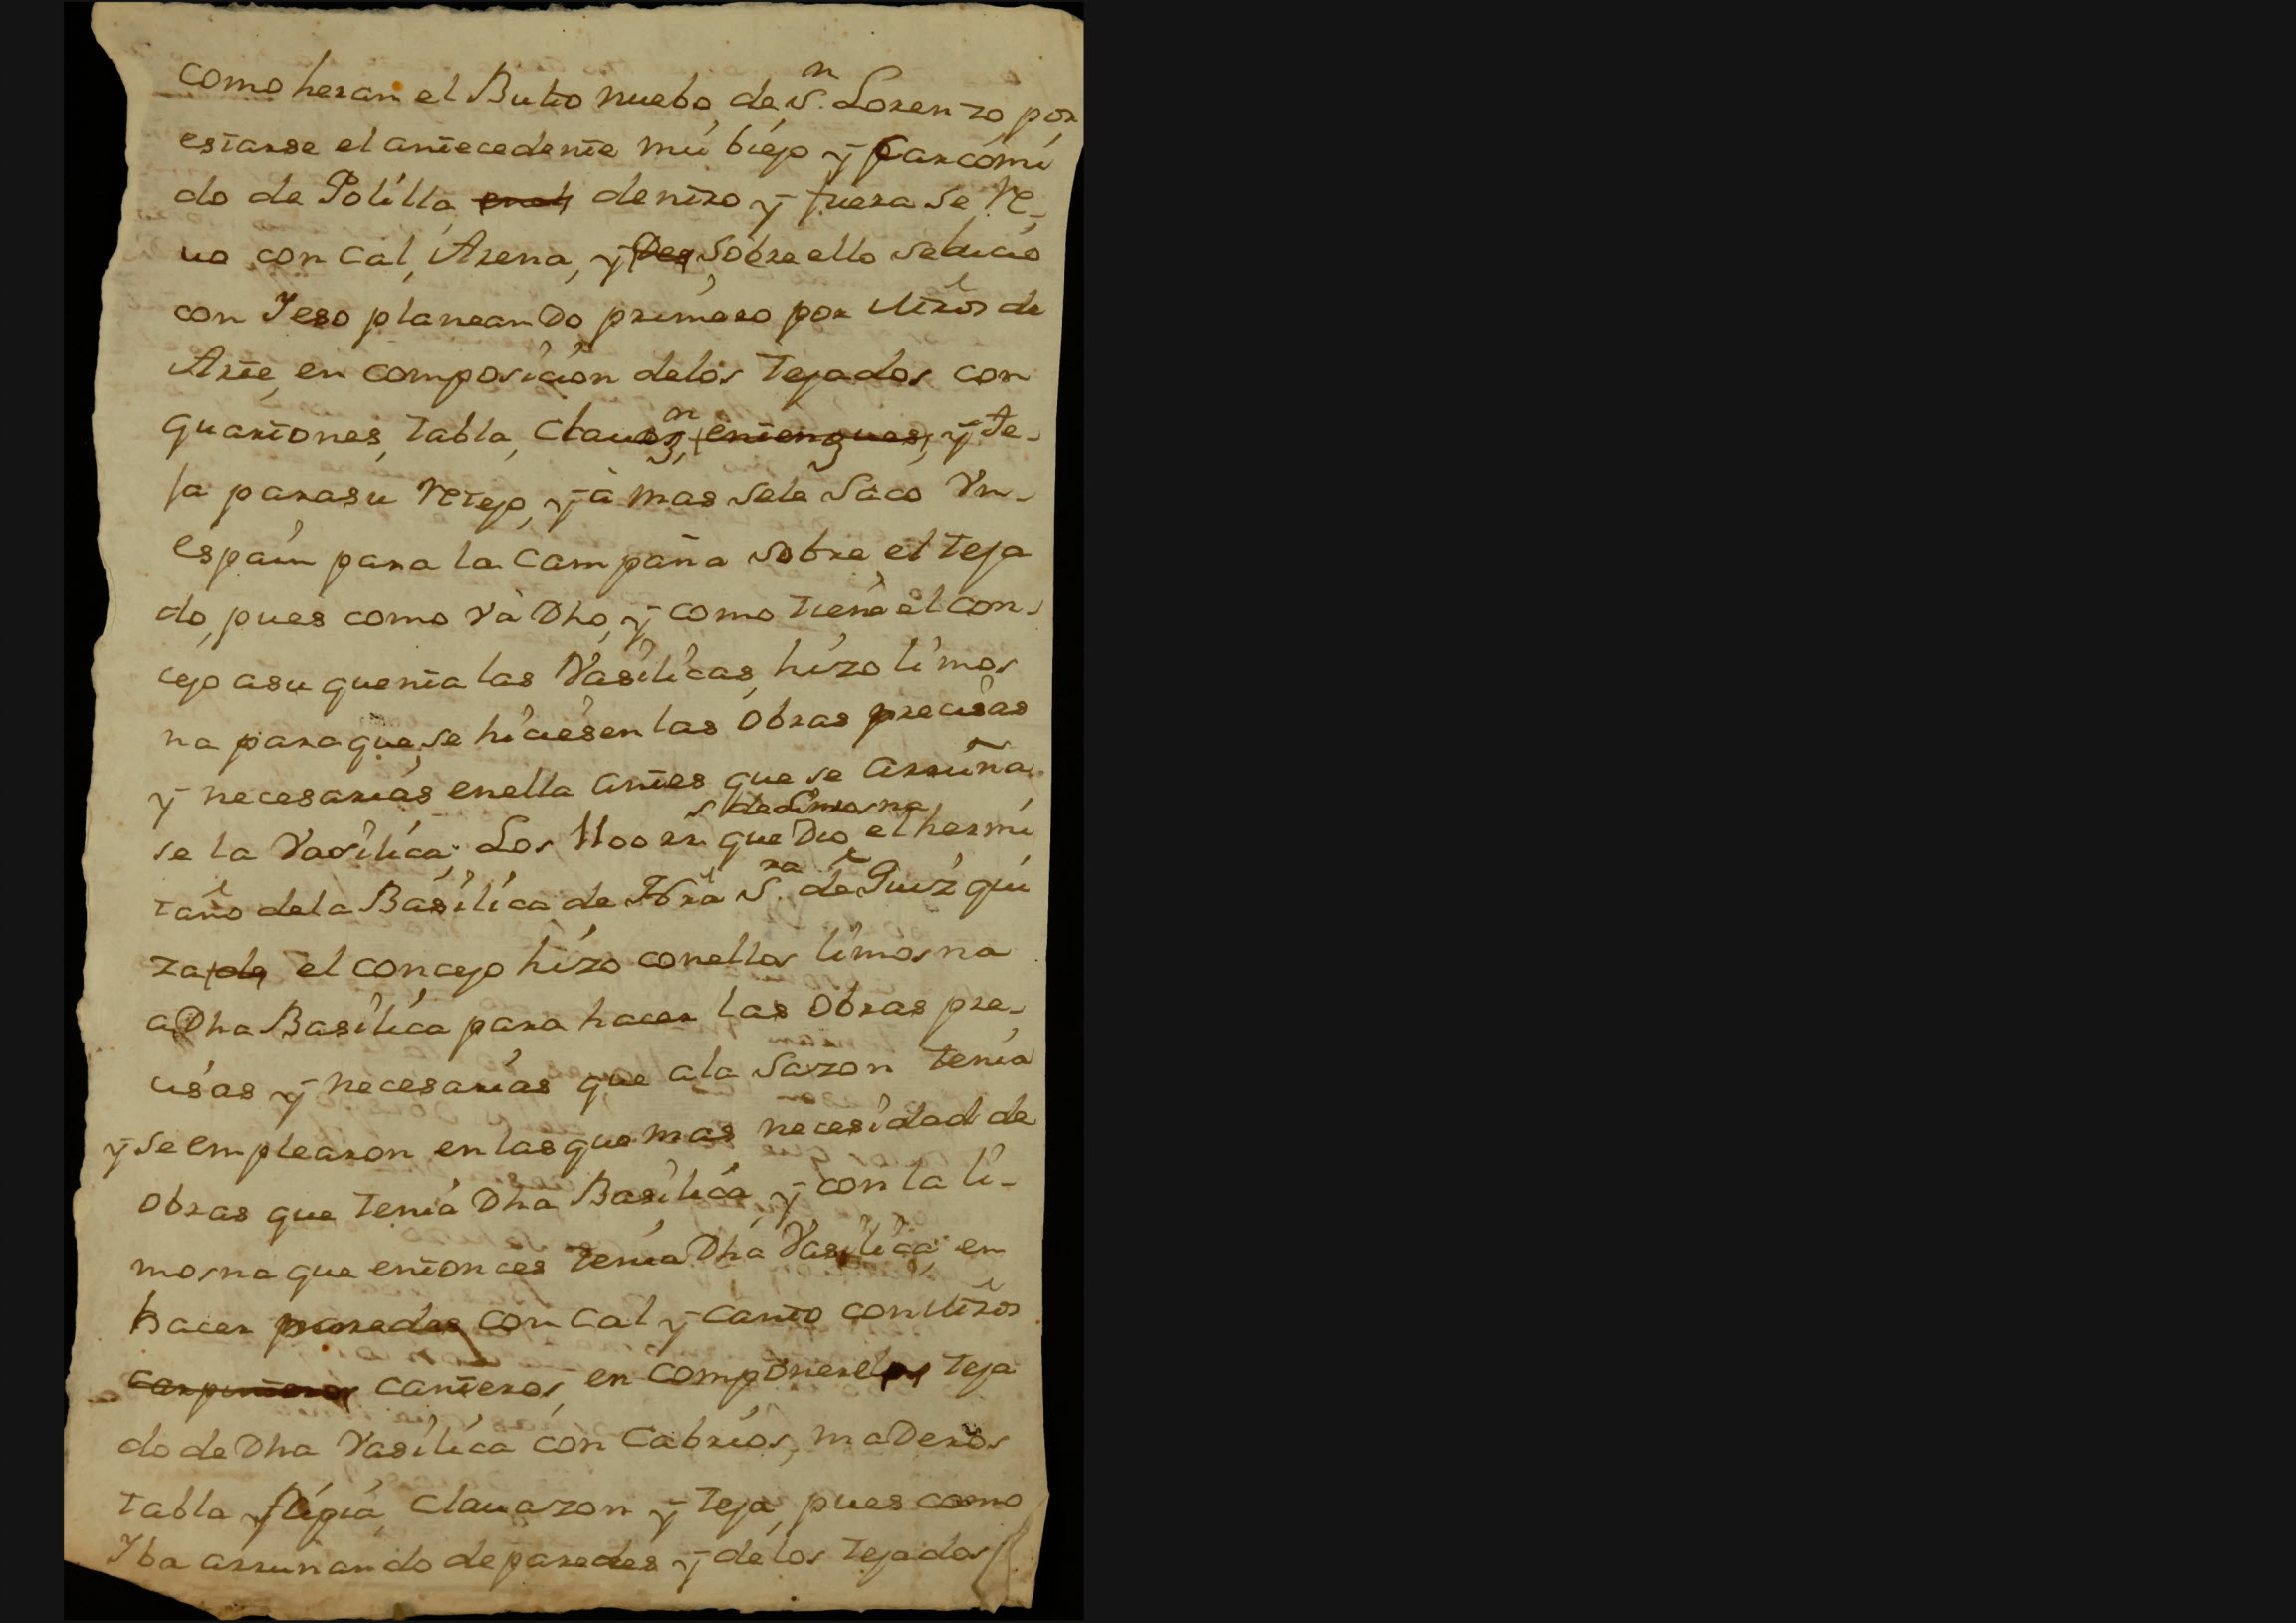 como heran el Buto nuebo, de S.n Lorenzo por
estarse el antecedente mui biejo y Carcomi
do de Polilla dentro y fuera se Re-
uo con Cal, Arena, y sobre ello se lucio
con Yeso planeando primero por Mros de
Arte, en composicion delos Tejados con
quartones, Tabla, Clauon, y Te-
ja parasu Retejo, y à mas sele Sacó Vn-
espain para la Campana sobre el Teja
do, pues como và Dho, y como tiene el con-
cejo asu quenta las Vasilicas, hizo limos
na paraque se hiciesen las Obras precisas
y necesarias enella antes que se arruina
se la Vasilica; Los 1100 rrs que Dio de Limosna el hermi
taño dela Basilica de Nra S.ra de Guizqui
za el concejo hizo conellos limosna
a Dha Basilica para hacer las Obras pre-
cisas y necesarias que ala Sazon tenia
y se emplearon en lasque mas necesidad de
obras que Tenia Dha Basilica, y con la li-
mosna que entonces tenia Dha Vasilica, en
hacer paredes con Cal y canto con Mros
canteros, en componer el Teja
do de Dha Vasilica con Cabrios, maDeros
Tabla Clauazon y Teja, pues como
Yba arruinando de paredes y de los Tejados